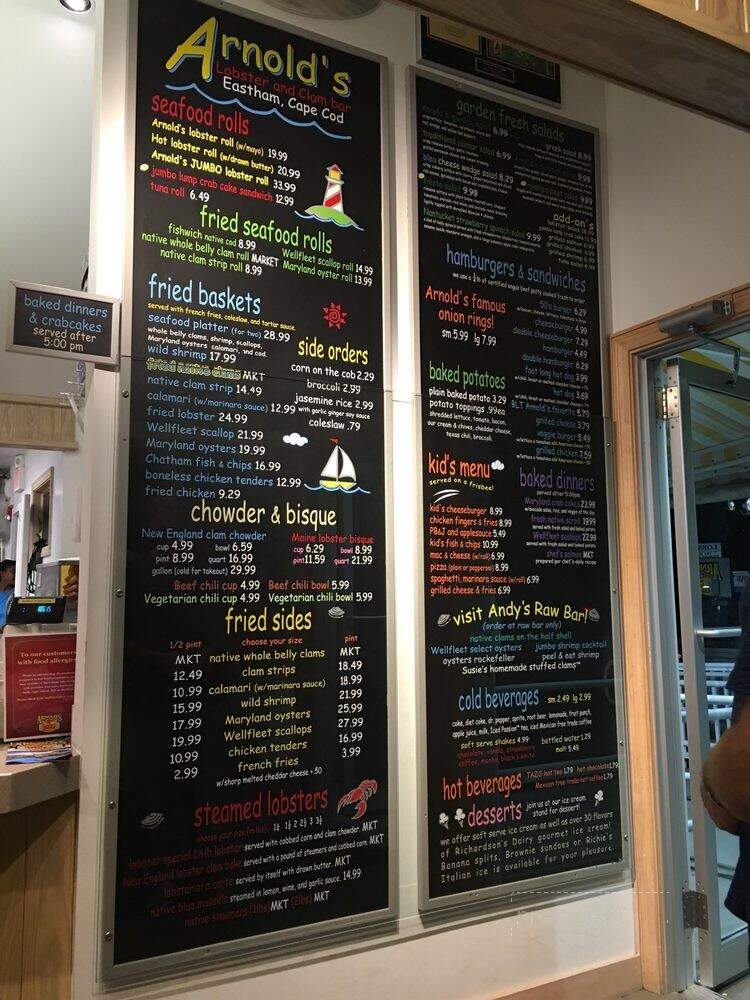 Arnold's
Lobster and Clam bar
Eastham, Cape Cod
seafood rolls
Arnold's lobster roll (w/mayo) 19.99
Hot lobster roll (w/drawn butter) 20.99
Arnold's JUMBO lobster roll 33.99
jumbo lump crab cake sandwich 12.99
tuna roll 6.49
fried seafood rolls
fishwich native cod 8.99
Wellfleet scallop roll 14.99
native whole belly clam roll MARKET
Maryland oyster roll 13.99
native clam strip roll 8.99
baked dinners
& crabcakes
served after
5:00 pm
fried baskets
served with french fries, coleslaw, and tartar sauce.
seafood platter (for two) 28.99
whole belly clams, shrimp, scallops,
Maryland oysters calamari, and cod.
wild shrimp 17.99
fried native clams MKT
native clam strip 14.49
calamari (w/marinara sauce) 12.99
fried lobster 24.99
Wellfleet scallop 21.99
Maryland oysters 19.99
Chatham fish & chips 16.99
boneless chicken tenders 12.99
fried chicken 9.29
side orders
corn on the cob 2.29
broccoli 2.99
jasemine rice 2.99
with garlic ginger soy sauce
coleslaw .79
chowder & bisque
New England clam chowder
cup 4.99 bowl 6.59
pint 8.99 quart 16.99
gallon (cold for takeout) 29.99
Maine lobster bisque
cup 6.29 bowl 8.99
pint 11.59 quart 21.99
Beef chili cup 4.99 Beef chili bowl 5.99
Vegetarian chili cup 4.99 Vegetarian chili bowl 5.99
fried sides
1/2 pint choose your size pint
MKT native whole belly clams MKT
12.49 clam strips 18.49
10.99 calamari (w/marinara sauce) 18.99
15.99 wild shrimp 21.99
17.99 Maryland oysters 25.99
19.99 Wellfleet scallops 27.99
10.99 chicken tenders 16.99
2.99 french fries 3.99
w/sharp melted cheddar cheese +.50
steamed lobsters
choose your size (in lbs).
lobster special 1¼lb lobster served with cobbed corn and clam chowder. MKT
New England lobster clam bake served with a pound of steamers and cobbed corn. MKT
lobster al a carte served by itself with drawn butter. MKT
native blue mussels steamed in lemon, wine, and garlic sauce. 14.99
native steamers (1lbs)MKT (2lbs) MKT
garden fresh salads
6.99
greek salad 8.99
traditional caesar salad 6.99
bleu cheese wedge salad 8.29
pesto salad 9.99
Nantucket strawberry spinach salad 9.99
add-on's
hamburgers & sandwiches
we use a ⅓ lb of certified angus beef patty cooked fresh to order
50's burger 6.29
cheeseburger 4.99
double cheeseburger 7.29
hamburger 4.49
double hamburger 6.29
foot long hot dog 3.99
hot dog 3.69
BLT Arnold's favorite 5.79
grilled cheese 3.79
veggie burger 5.49
grilled chicken 7.59
Arnold's famous
onion rings!
sm 5.99 lg 7.99
baked potatoes
plain baked potato 3.29
potato toppings .99ea
shredded lettuce, tomato, bacon,
our cream & chives, cheddar cheese,
texas chili, broccoli.
kid's menu
served on a frisbee!
kid's cheeseburger 8.99
chicken fingers & fries 8.99
PB&J and applesauce 5.49
kid's fish & chips 10.99
mac & cheese (w/roll) 6.99
pizza (plain or pepperoni) 8.99
spaghetti, marinara sauce (w/roll) 6.99
grilled cheese & fries 6.99
baked dinners
served after 5:00pm
Maryland crab cakes 23.99
fresh native scrod 19.99
served with fresh salad and baked potato
Wellfleet scallops 22.99
served with fresh salad and baked potato
chef's salmon MKT
prepared per chef's daily recipe
visit Andy's Raw Bar!
(order at raw bar only)
native clams on the half shell
Wellfleet select oysters jumbo shrimp cocktail
oysters rockefeller peel & eat shrimp
Susie's homemade stuffed clams™
cold beverages sm 2.49 lg 2.99
coke, diet coke, dr. pepper, sprite, root beer, lemonade, fruit punch,
apple juice, milk, Iced Passion™ tea, iced Mexican free trade coffee
soft serve shakes 4.99 bottled water 1.29
chocolate, vanilla, strawberry
coffee, mocha, black & white
malt 5.49
hot beverages TAZO hot tea 1.79 hot chocolate 1.79
Mexican free trade hot coffee 1.79
desserts join us at our ice cream
stand for dessert!
we offer soft serve ice cream as well as over 30 flavors
of Richardson's Dairy gourmet ice cream!
Banana splits, Brownie sundaes or Richie's
Italian ice is available for your pleasure.
To our customers
with food allergies
ARNOLD'S